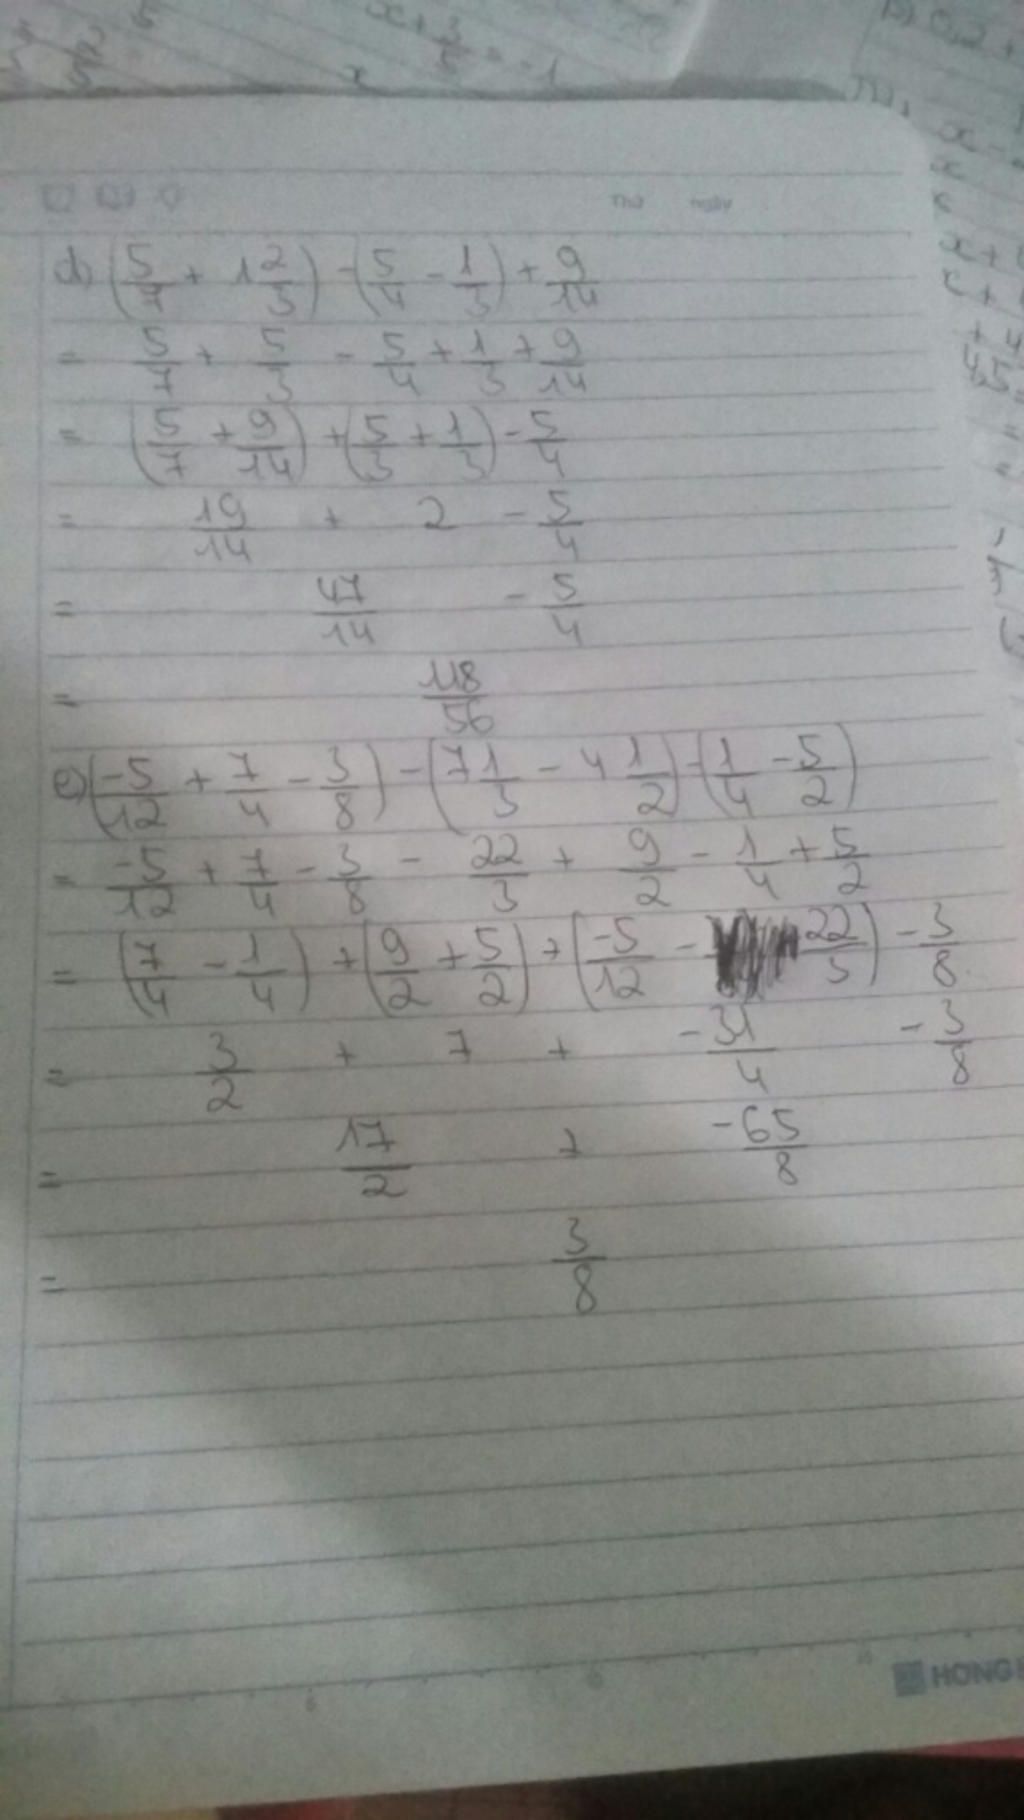 d) (5/7 + 1 2/3) - (5/4 - 1/3) + 9/14
= 5/7 + 5/3 - 5/4 + 1/3 + 9/14
= (5/7 + 9/14) + (5/3 + 1/3) - 5/4
= 19/14 + 2 - 5/4
= 47/14 - 5/4
= 118/56
e) (-5/12 + 7/4 - 3/8) - (7 1/3 - 4 1/2) - (1/4 - 5/2)
= -5/12 + 7/4 - 3/8 - 22/3 + 9/2 - 1/4 + 5/2
= (7/4 - 1/4) + (9/2 + 5/2) + (-5/12 - 22/3) - 3/8
= 3/2 + 7 + -31/4 - 3/8
= 17/2 + -65/8
= 3/8
HONG